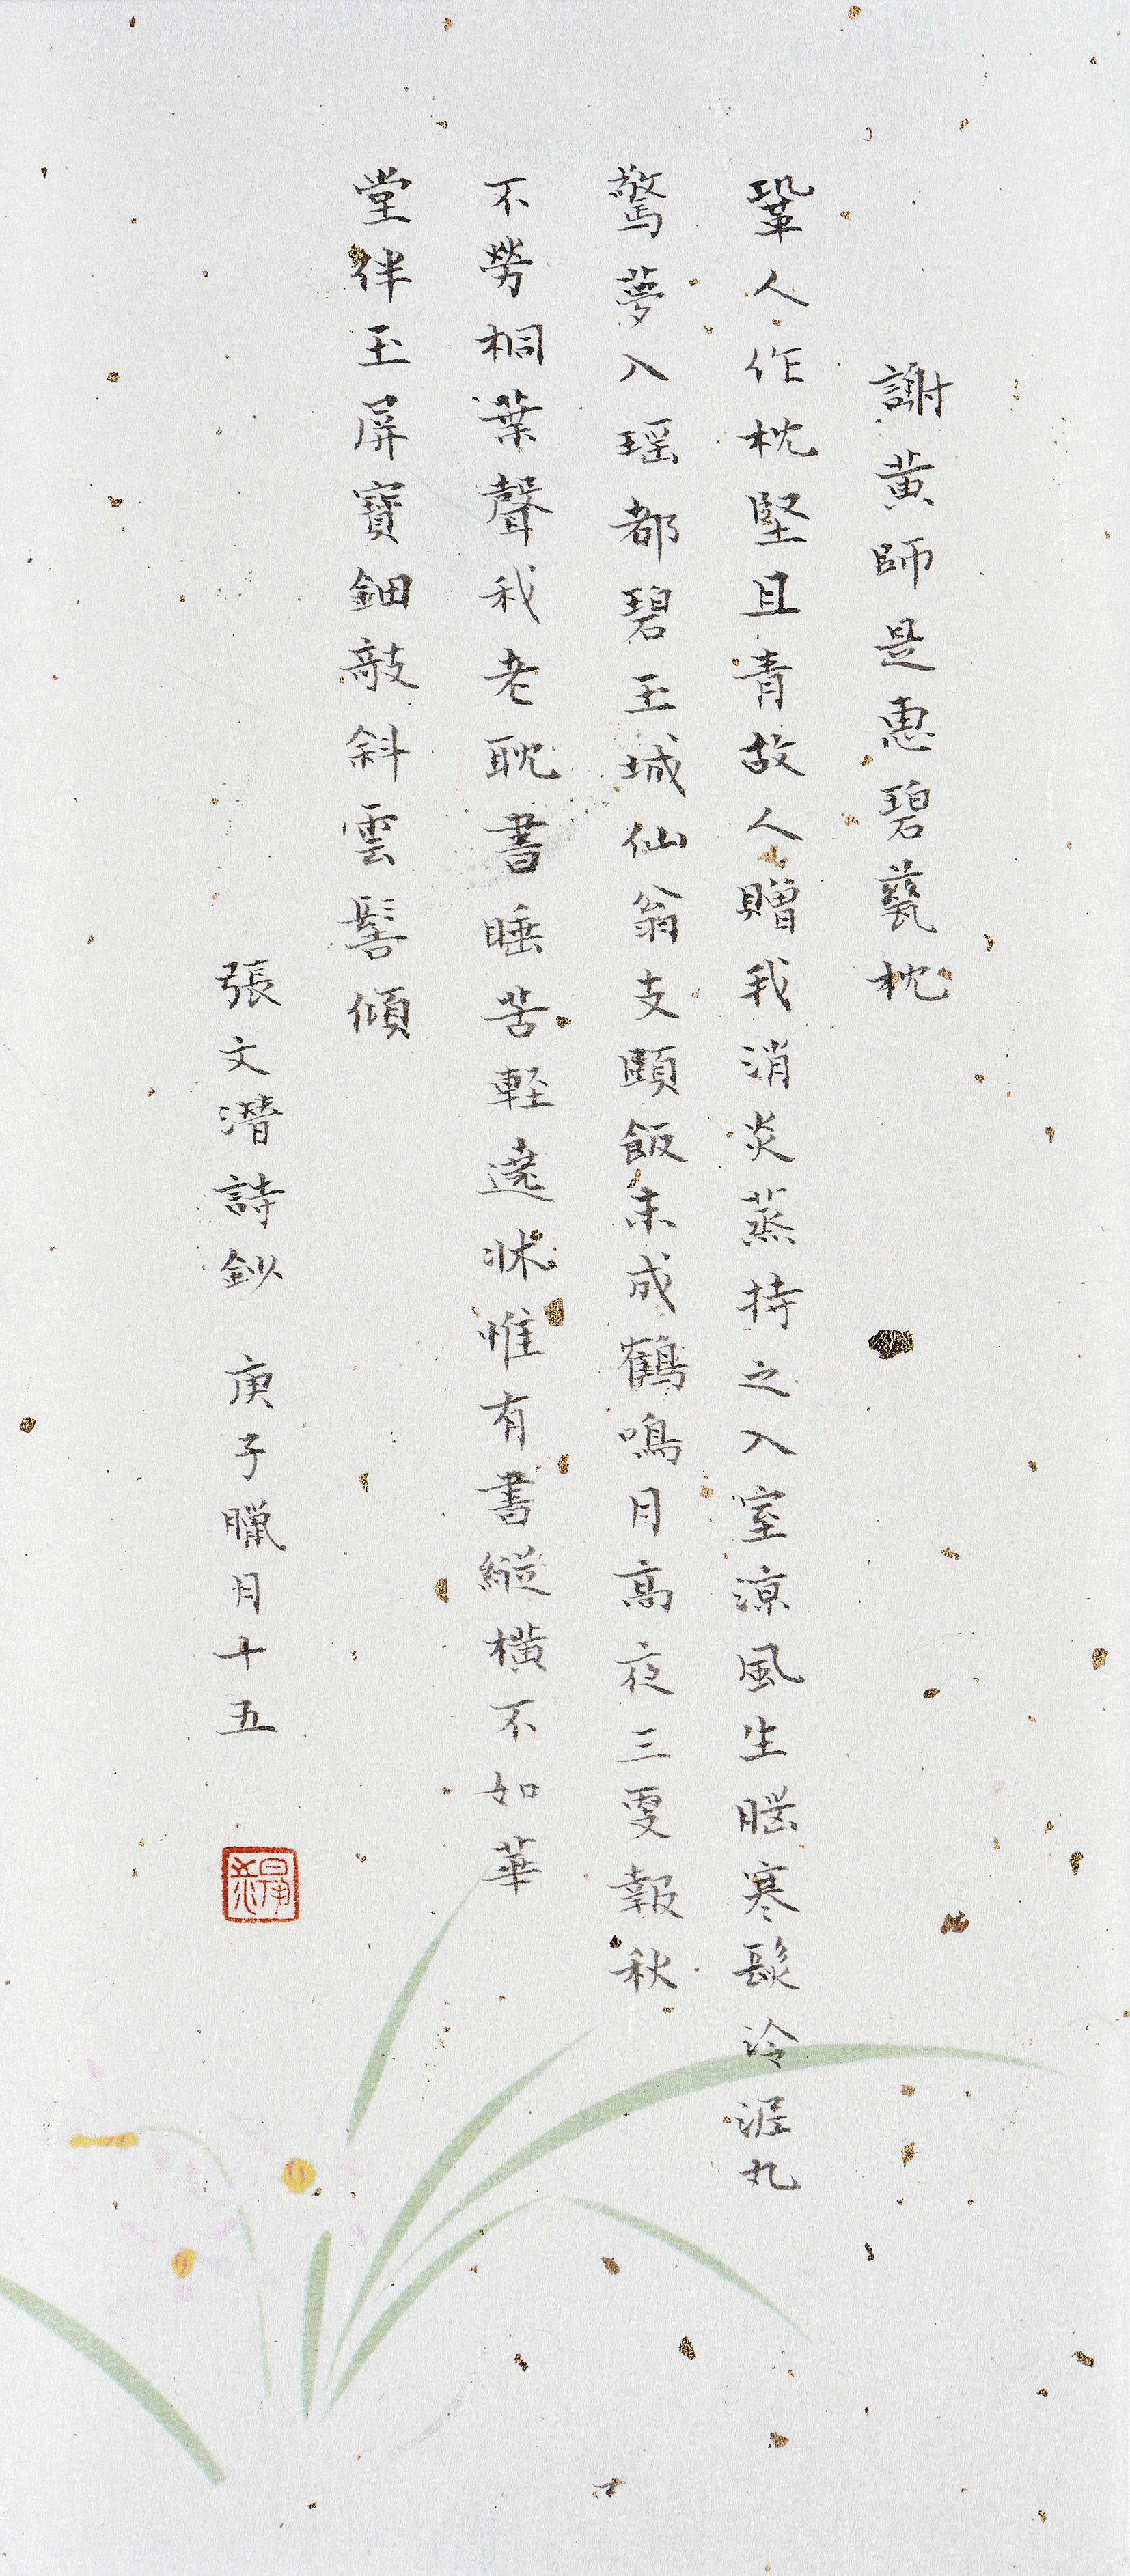 謝黃師是惠碧甆枕
鞏人作枕堅且青故人贈我消炎蒸持之入室涼風生腦寒髮冷泥丸
驚夢入瑤都碧玉城仙翁支頤飯未成鶴鳴月高夜三更報秋
不勞桐葉聲我老耽書睡苦輕遶牀惟有書縱橫不如華
堂伴玉屏寶鈿敲斜雲髻傾
張文潛詩鈔 庚子臘月十五